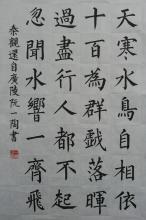 天寒水鳥自相依
十百為群戲落暉
過盡行人都不起
忽聞水響一齊飛
秦觀還自廣陵阮一陶書